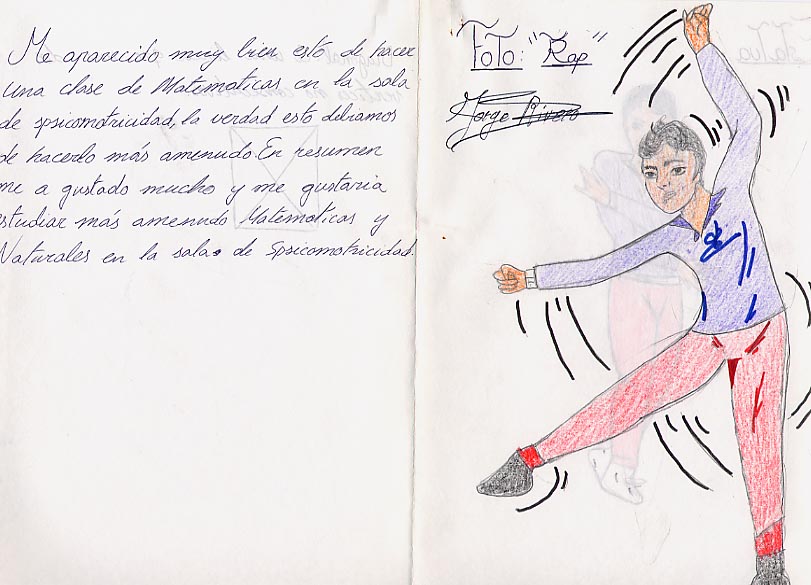 Me aparecido muy bien esto de hacer
una clase de Matematicas en la sala
de spsicomotricidad, la verdad esto debiamos
de hacerlo más amenudo. En resumen
me a gustado mucho y me gustaria
estudiar más amenudo Matematicas y
Naturales en la sala de Spsicomotricidad.
FoTo: "Rap"
Jorge Rivero